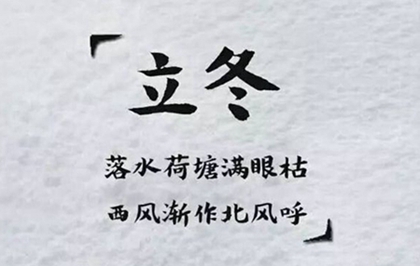 立冬
落水荷塘满眼枯
西风渐作北风呼